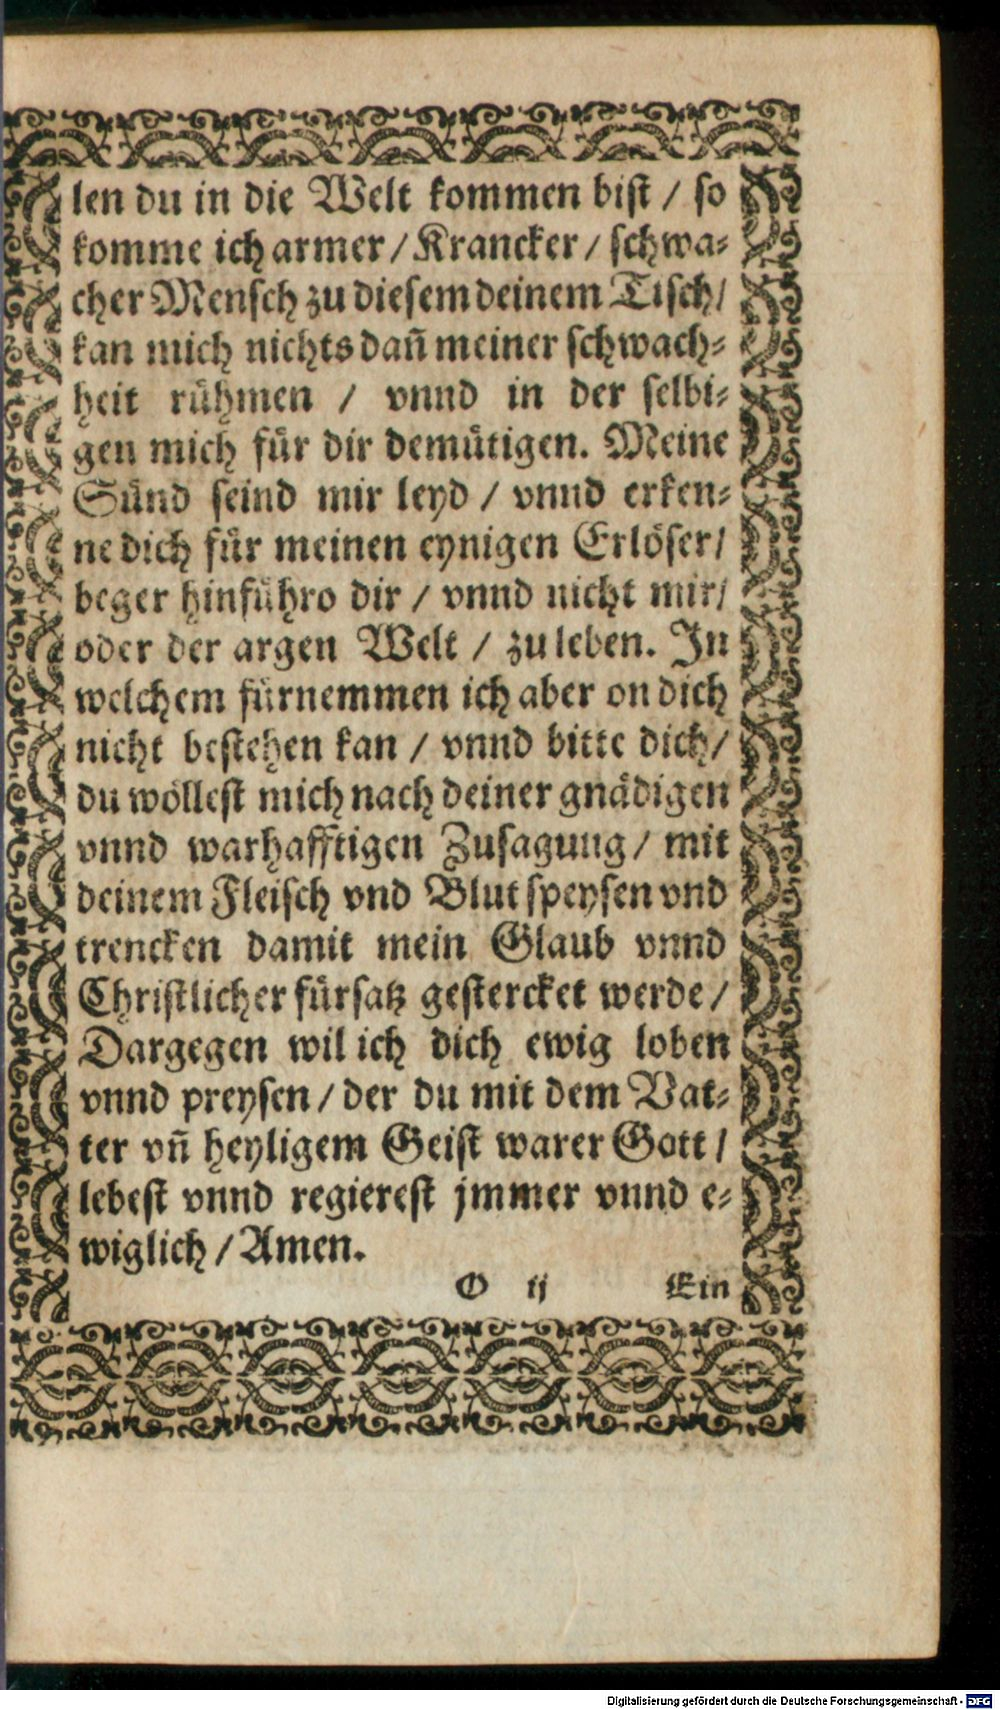 len du in die Welt kommen bist / so
komme ich armer / Krancker / schwa-
cher Mensch zu diesem deinem Tisch /
kan mich nichts dañ meiner schwach-
heit rühmen / vnnd in der selbi-
gen mich für dir demütigen. Meine
Sünd seind mir leyd / vnnd erken-
ne dich für meinen eynigen Erlöser /
beger hinführo dir / vnnd nicht mir /
oder der argen Welt / zu leben. In
welchem fürnemmen ich aber on dich
nicht bestehen kan / vnnd bitte dich /
du wöllest mich nach deiner gnädigen
vnnd warhafftigen Zusagung / mit
deinem Fleisch vnd Blut speysen vnd
trencken damit mein Glaub vnnd
Christlicher fürsatz gestercket werde /
Dargegen wil ich dich ewig loben
vnnd preysen / der du mit dem Vat-
ter vñ heyligem Geist warer Gott /
lebest vnnd regierest jmmer vnnd e-
wiglich / Amen.
O ij Ein
Digitalisierung gefördert durch die Deutsche Forschungsgemeinschaft - DFG